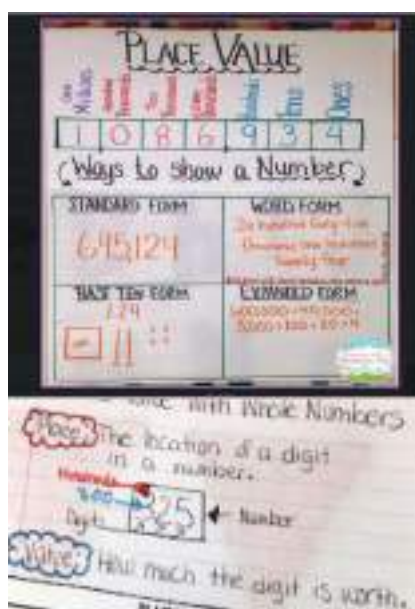 PLACE VALUE
One Millions Hundred Thousands Ten Thousands One Thousands Hundreds Tens Ones
1 0 8 6 9 3 4
(Ways to show a Number)
STANDARD FORM
645,124
WORD FORM
Six hundred forty-five
thousand one hundred
twenty four
BASE TEN FORM
124
EXPANDED FORM
600,000+40,000+
5000+100+20+4
Value With Whole Numbers
Place: The location of a digit
in a number.
Hundreds
325
Digits
Number
Value: How much the digit is worth.